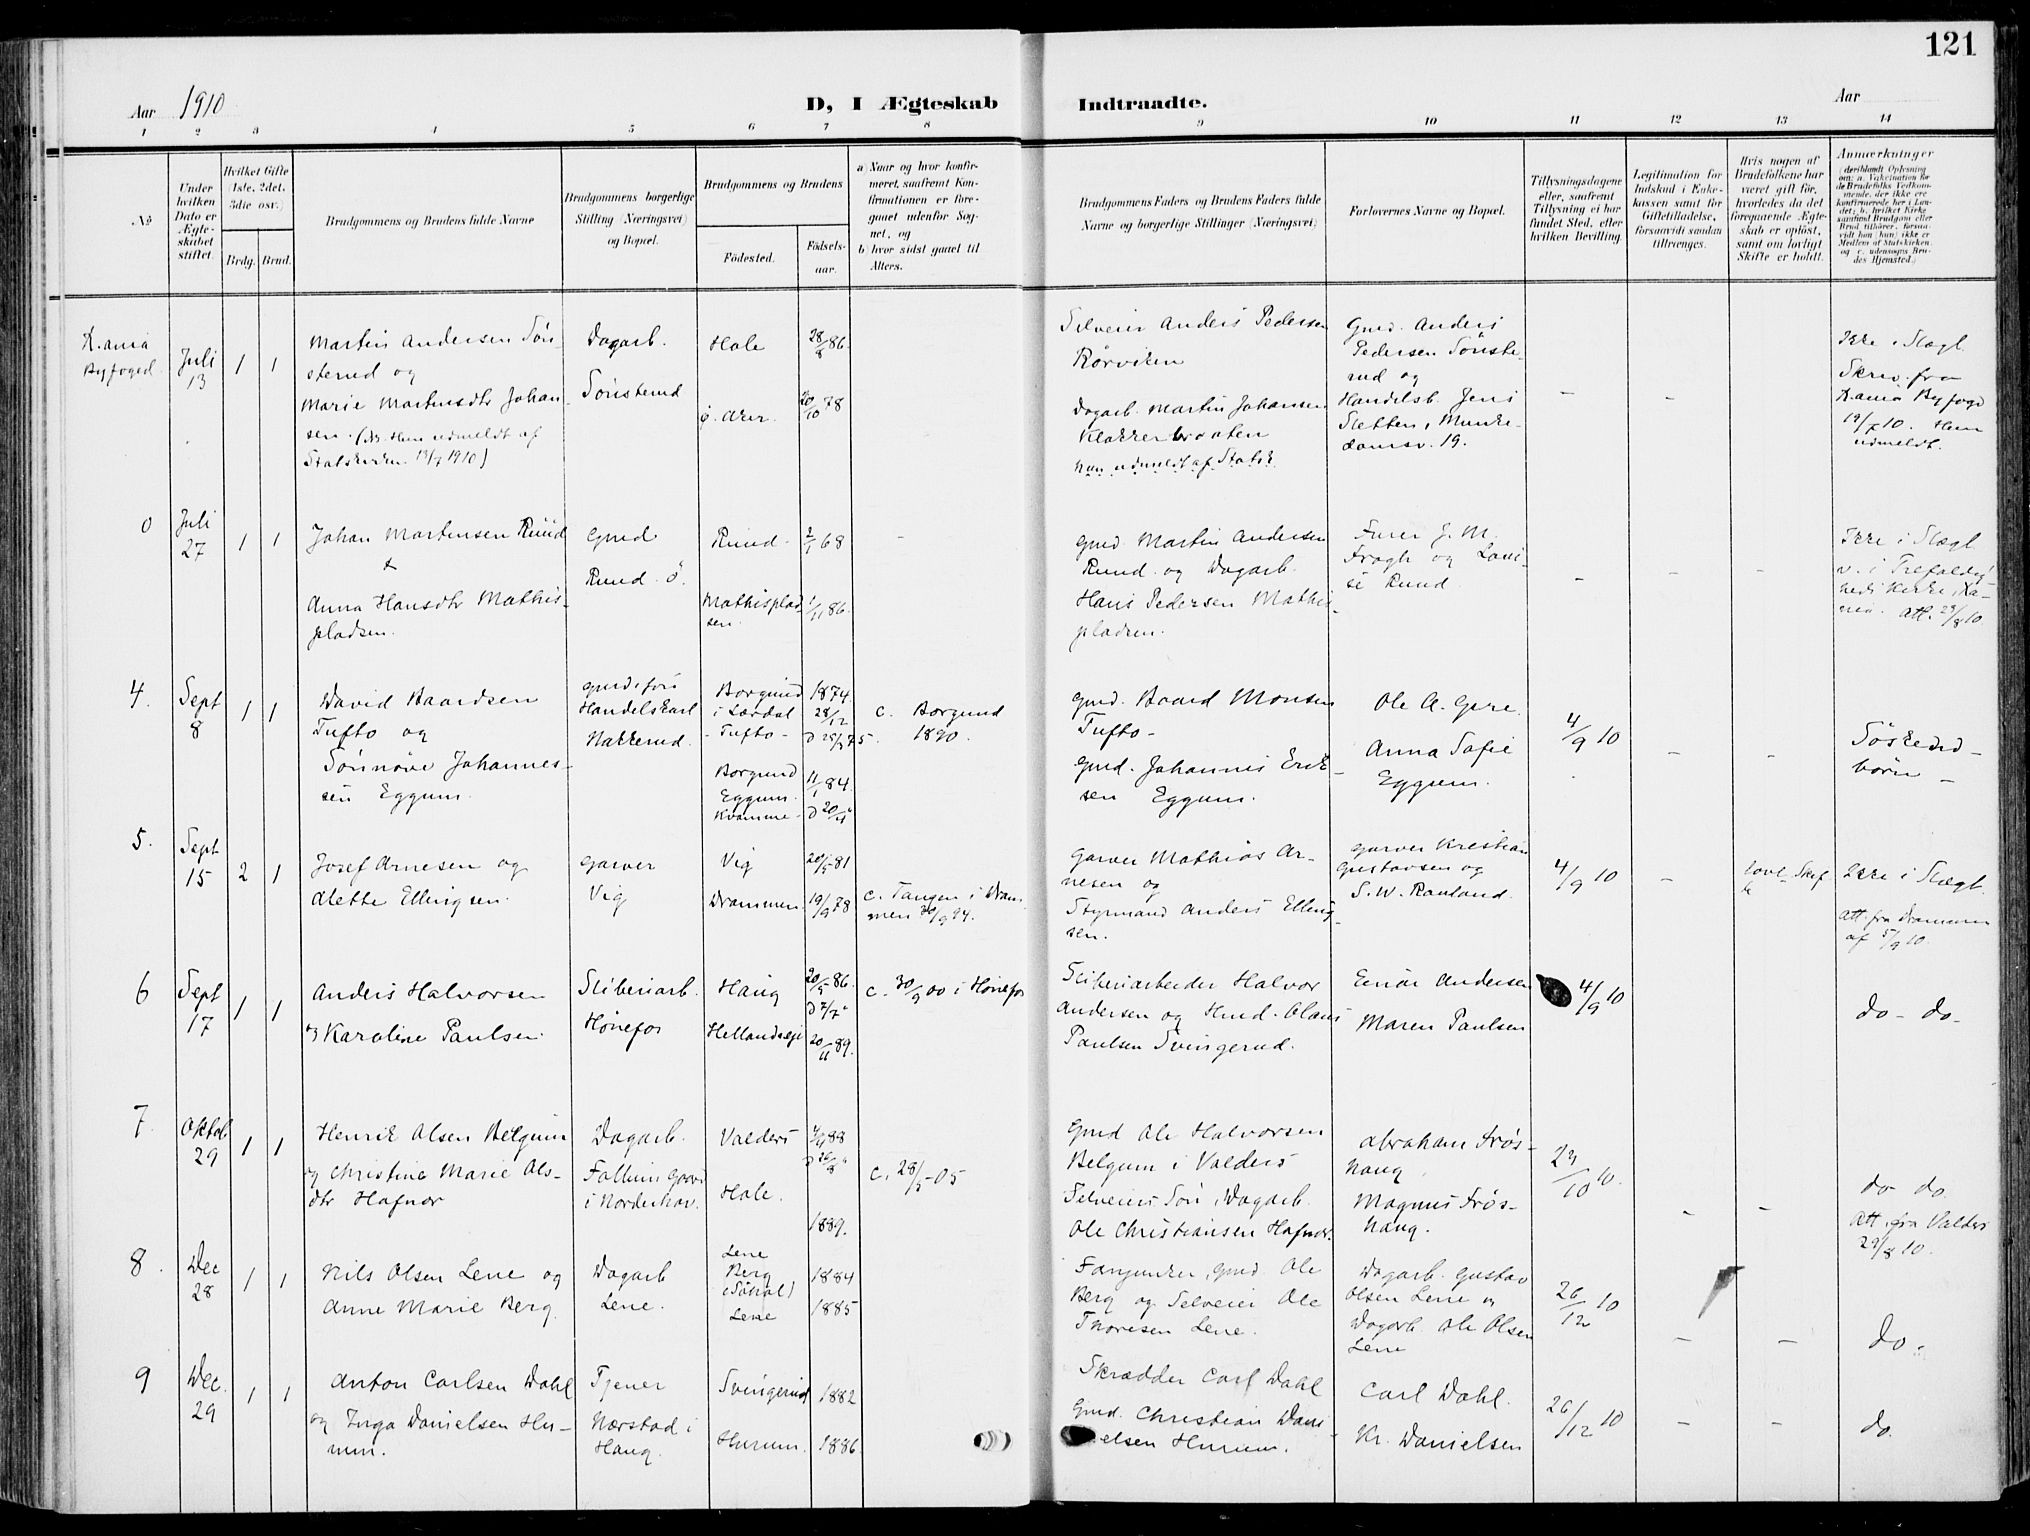 121
Aar 1910
D, I Ægteskab Indtraadte.
Aar
1 2 3 4 5 6 7 8 9 10 11 12 13 14
No
Under hvilken Dato er Ægteskabet stiftet.
Hvilket Gifte (1ste, 2det, 3die osv.)
Brdg. Brud.
Brudgommens og Brudens fulde Navne
Brudgommens borgerlige Stilling (Næringsvei) og Bopæl.
Brudgommens og Brudens
Födested.
Födselsaar.
a) Naar og hvor konfirmeret, saafremt Konfirmationen er foregaaet udenfor Sognet, og
b) hvor sidst gaaet til Alters.
Brudgommens Faders og Brudens Faders fulde Navne og borgerlige Stillinger (Næringsvei)
Forlovernes Navne og Bopæl.
Tillysningsdagene eller, saafremt Tillysning ei har fundet Sted, efter hvilken Bevilling.
Legitimation for Indskud i Enkekassen samt for Giftetilladelse, forsaavidt saadan tiltrænges.
Hvis nogen af Brudefolkene har været gift før, hvorledes da det foregaaende Ægteskab er oplöst, samt om lovligt Skifte er holdt.
Anmærkninger
K.ania Byfoged
Juli 13
1 1
Martin Andersen Sön-
sterud og
Marie Martinsdtr Johan-
sen. udmeldt af
Statskirken 13/7 1910)
Dagarb.
Sönsterud
Hole
28/8 86
20/10 78
Selveier Anders Pedersen
Rörviken
Dagarb. Martin Johansen
Klækkenbraaten
Hun udmeldt af Statsk.
Gmd. Anders
Pedersen Sönste-
rud og
Handelsb. Jens
Sletten, Munke-
damsv. 19.
-
-
Ikke i Slægt
Skriv. fra
K.ania Byfogd
19/7 10. Hun
udmeldt.
0
Juli 27
1 1
Johan Martinsen Ruud
&
Anna Hansdtr Mathis-
pladsen.
Gmd.
Ruud. ö.
Ruud.
Mathisplad-
sen.
2/1 68
1/11 86
-
Gmd. Martin Andersen
Ruud og Dagarb.
Hans Pedersen Mathis-
pladsen.
J. M.
Fragh og Loui-
se Ruud
- - -
Ikke i Slægt
v. i Trefoldig-
heds Kirke, K.a-
nia. Att. 29/8 10
4.
Sept 8
1 1
David Baardsen
Tufto og
Sönnöve Johannes-
sen Eggum.
Handelskarl
Hakkerud.
Borgund
i Lærdal
- Tufto -
Borgund
Eggum.
Kvamme -
1874
28/12
11/1 84.
c. Borgund
1890.
Gmd. Baard Monsen
Tufto -
Gmd. Johannes Erik-
sen Eggum.
Ole A. Gjre.
Anna Sofie
Eggum.
4/9 10
- -
Söskend-
börn -
5.
Sept 15
2 1
Josef Arnesen og
Alette Ellingsen.
Garver
Vig
Vig
Drammen.
20/5 81
19/9 78
c. Tangen i Dram-
men 30/9 94.
Garver Mathias Ar-
nesen og
Styrmand Anders Elling-
sen.
Garver Kristian
Gustavsen og
S. W. Rauland
4/9 10
-
Lovl. Skif-
Ikke i Slægt.
Att. fra Drammen
af 5/9 10.
6
Sept 17
1 1
Anders Halvorsen
og Karoline Paulsen.
Sliberiarb.
Hönefos
Haug
Hellandseje
20/5 86.
20/11 89.
c. 30/9 00 i Hönefos
Sliberiarbeider Halvor
Andersen og Hmd. Claus
Paulsen Svingerud.
Einar Andersen
Maren Paulsen
4/9 10
do - do -
7
Oktob. 29
1 1
Henrik Olsen Belgum
og Christine Marie Ols-
dtr Hafnor
Dagarb.
Follum Gaard
i Norderhov.
Valders
Hole.
88
1889.
c. 28/5 - 05
Gmd Ole Halvorsen
Belgum i Valders
Selveiers Sön, Dagarb.
Ole Christiansen Hafnor.
Abraham Frös-
haug
Magnus Frös-
haug.
23/10 10.
- -
do do.
Att. fra Valders
29/8 10.
8.
Dec 28
1 1
Nils Olsen Lene og
Anne Marie Berg.
Dagarb
Lene.
Lene
Berg
Lene
1884
1885
Gmd. Ole
Berg og Selveier Ole
Thoresen Lene.
Dagarb. Gustav
Olsen Lene og
Dagarb. Ole Olsen
Lene
26/12 10
- -
do -
9
Dec. 29
1 1
Anton Carlsen Dahl
og Inga Danielsen Hu-
rum.
Tjener
Nærstad i
Haug.
Svingerud
Hurum.
1882
1886
Skrædder Carl Dahl
Gmd. Christian Dani-
elsen Hurum.
Carl Dahl.
Kr. Danielsen
26/12 10
- -
do.